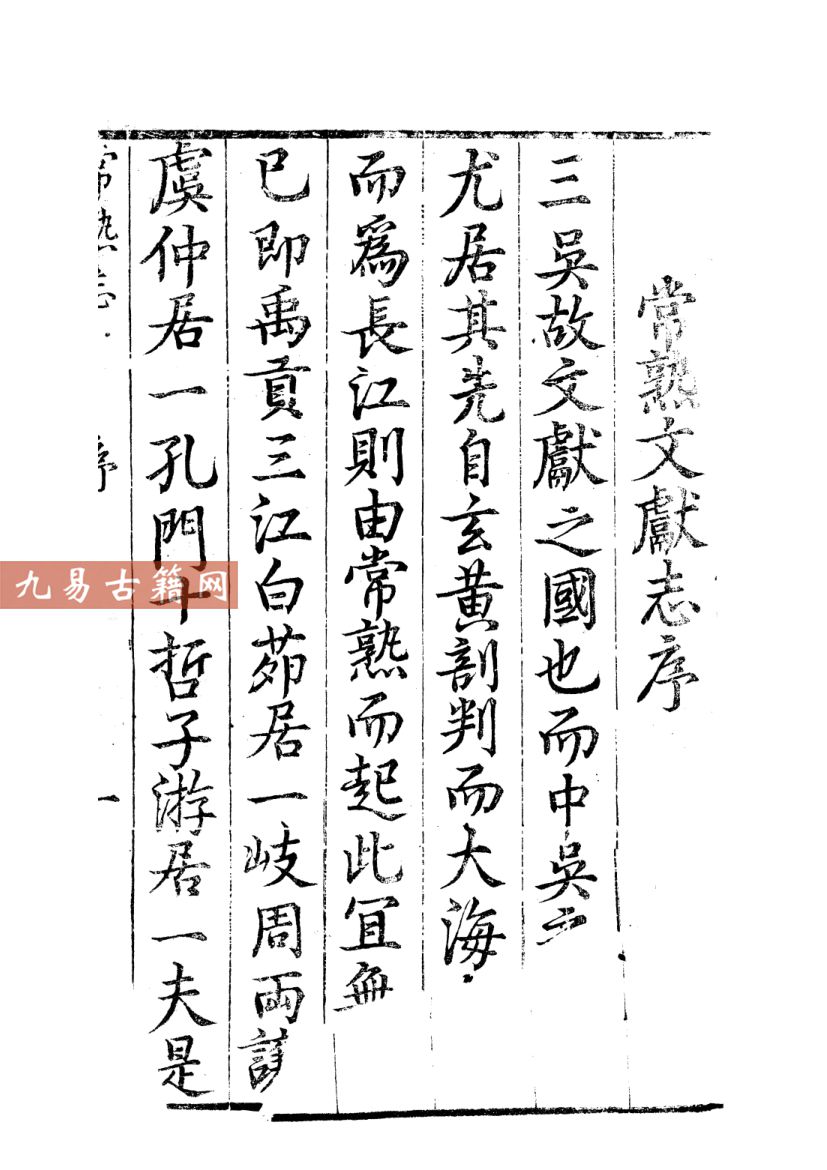 常熟文獻志序
三吳故文獻之國也而中吳
尤居其先自玄黄剖判而大海
而爲長江則由常熟而起此冝無
已即禹貢三江白茆居一岐周兩
虞仲居一孔門十哲子游居一夫是
常熟志 序 一
九易古籍网